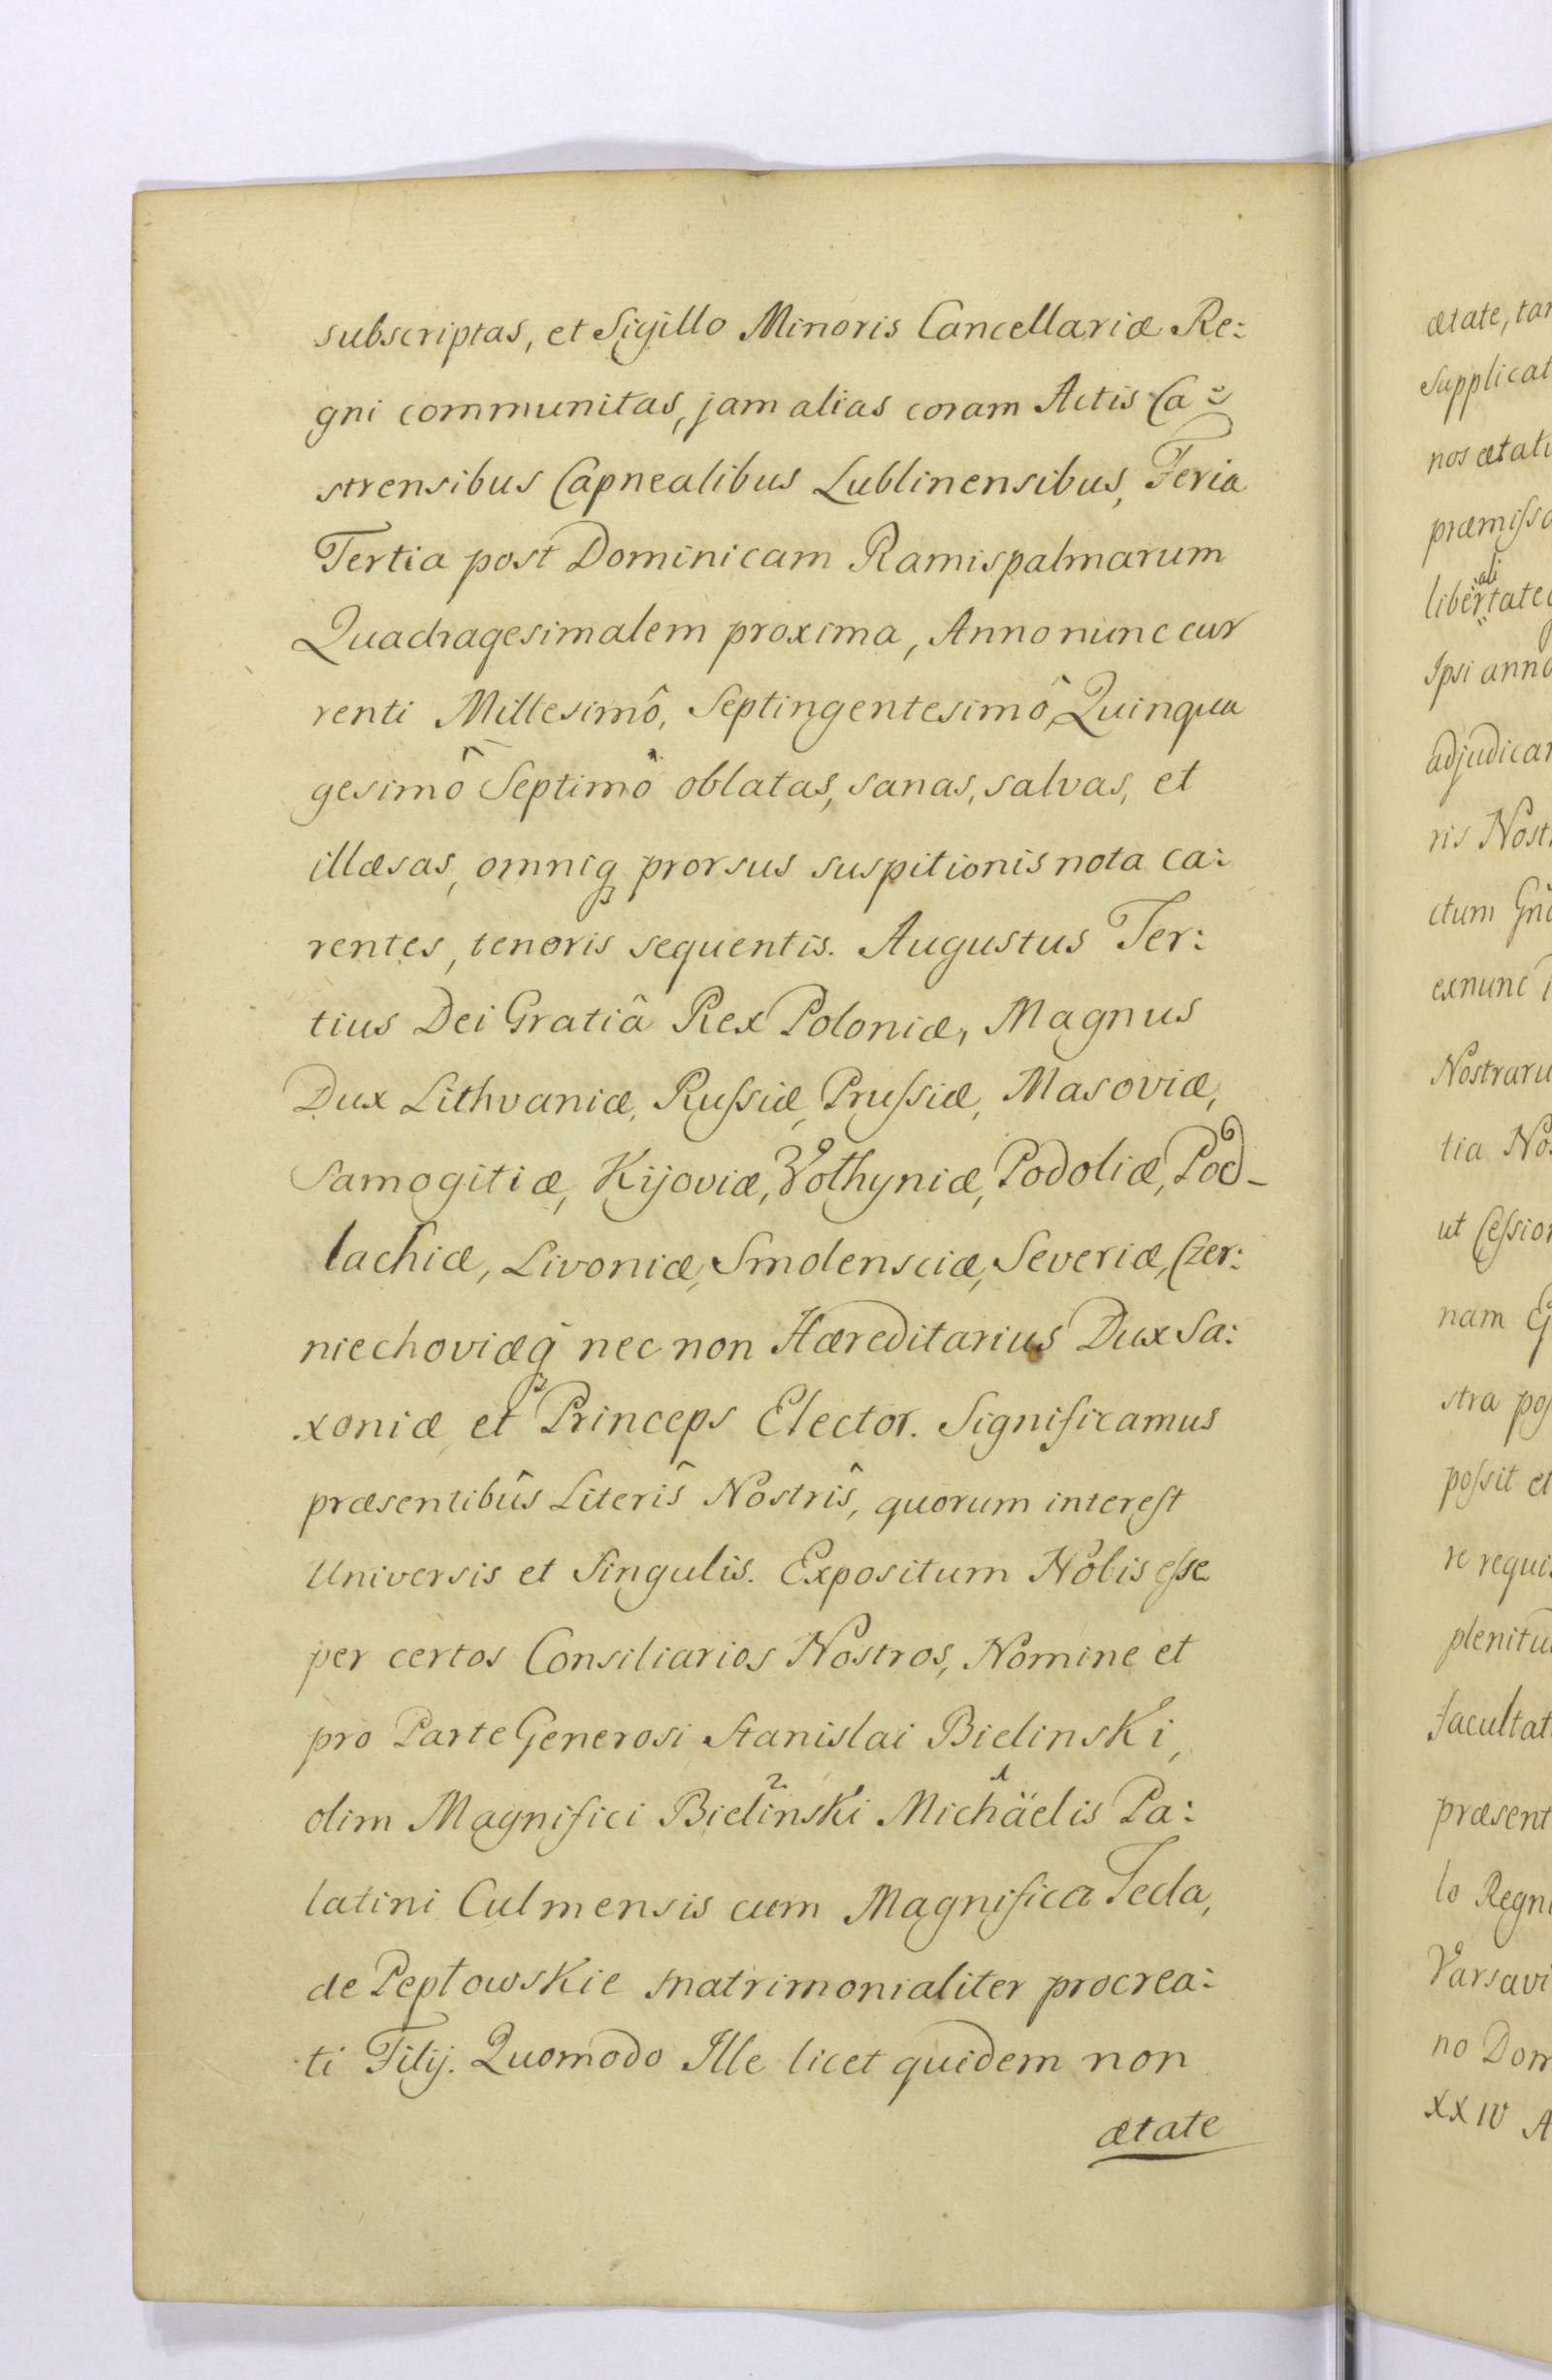 subscriptas, et Sigillo Minoris Cancellariæ Re:
gni communitas, jam alias coram Actis Ca:
strensibus Capnealibus Lublinensibus, Feria
Tertia post Dominicam Ramispalmarum
Quadragesimalem proxima, Anno nunc cur
renti Millesimô, Septingentesimô, Quinqua
gesimô Septimô oblatas, sanas, salvas, et
illæsas, omniq prorsus suspitionis nota ca:
rentes, tenoris sequentis. Augustus Ter:
tius Dei Gratiâ Rex Poloniæ, Magnus
Dux Lithvaniæ, Russiæ, Prussiæ, Masoviæ,
Samogitiæ, Kijoviæ, Volhyniæ, Podoliæ, Pod-
lachiæ, Livoniæ, Smolensciæ, Severiæ, Czer:
niechoviæq nec non Hæreditarius Dux Sa:
xoniæ et Princeps Elector. Significamus
præsentibûs Literîs Nostrîs, quorum interest
Universis et Singulis. Expositum Nobis esse
per certos Consiliarios Nostros, Nomine et
pro Parte Generosi Stanislai Bielinski,
olim Magnifici Bielinski 2 Michäelis 1 Pa:
latini Culmensis cum Magnifica Tecla,
de Pepłowskie matrimonialiter procrea:
ti Filij. Quomodo Ille licet quidem non
ætate
ætate, tan
Supplicat
nos ætati
præmissa
ali
libertate
Ipsi anno
adjudicar
ris Nost
ctum Gn
exnunc
Nostraru
tia No
ut Cession
nam
stra pos
possit et
re requi
plenitu
Facultat
præsent
lo Regni
Varsavi
no Dom
XXIV A